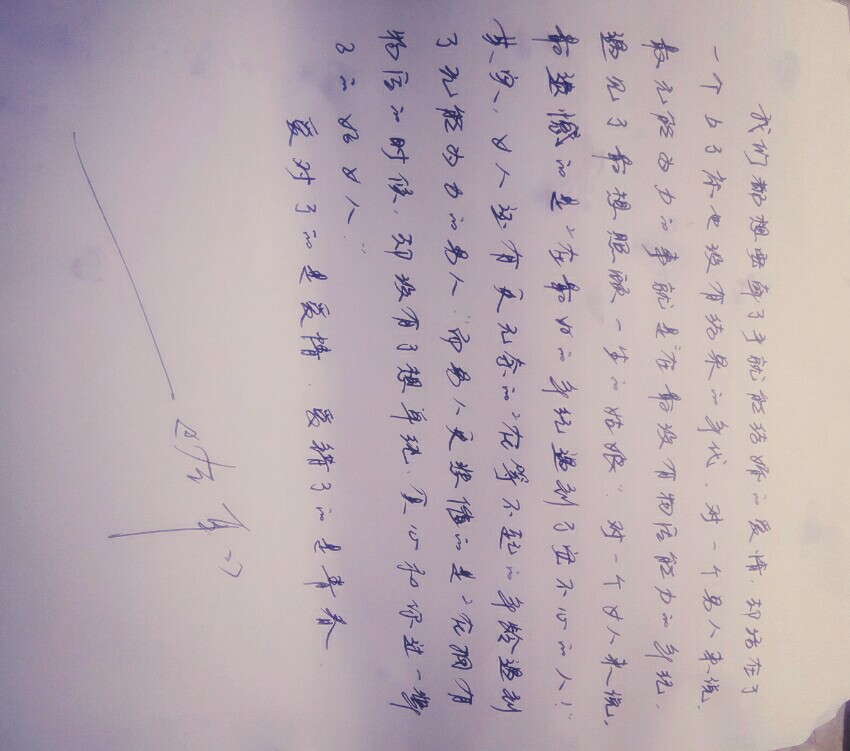 我们都想要牵了手就能结婚的爱情,却活在了
一个上了床也没有结果的年代,对一个男人来说,
最无能为力的事就是"在最没有物质能力的年纪,
遇见了最想照顾一生的姑娘".对一个女人来说,
最遗憾的是"在最好的年纪遇到了不的人!"
其实,女人还有更无奈的"在等不起的年龄遇到
了无能为力的男人."而男人更悲催的是"在拥有
物质的时候,却没有了想单纯,真心和你过一辈
子的好女人."
爱对了的是爱情.爱错了的是青春